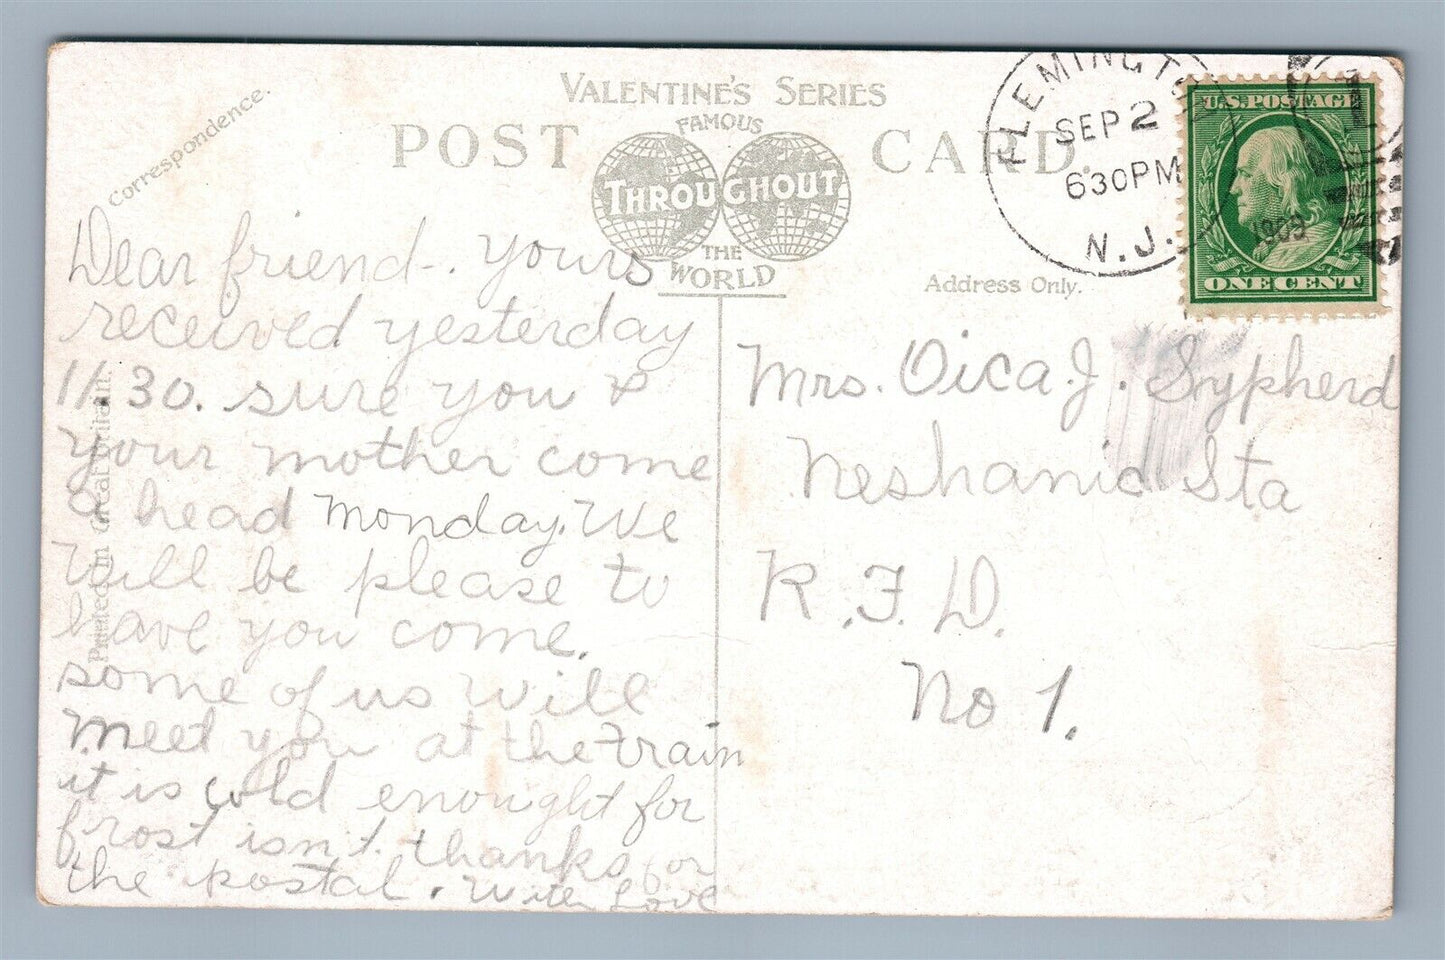 VALENTINE'S SERIES
FAMOUS
POST CARD.
THROUGHOUT
THE
WORLD
Correspondence.
Address Only.
Printed in Great Britain.
FLEMINGTON
SEP 2
630PM
1909
N.J.
1
U.S. POSTAGE
ONE CENT
Dear friend-. yours
received yesterday
11.30. sure you &
your mother come
a head monday. We
will be please to
have you come.
some of us will
meet you at the train
it is cold enought for
frost isn't. thanks for
the postal. With Love
Mrs. Oica J. Sypherd
Neshanic Sta
R.F.D.
No 1.